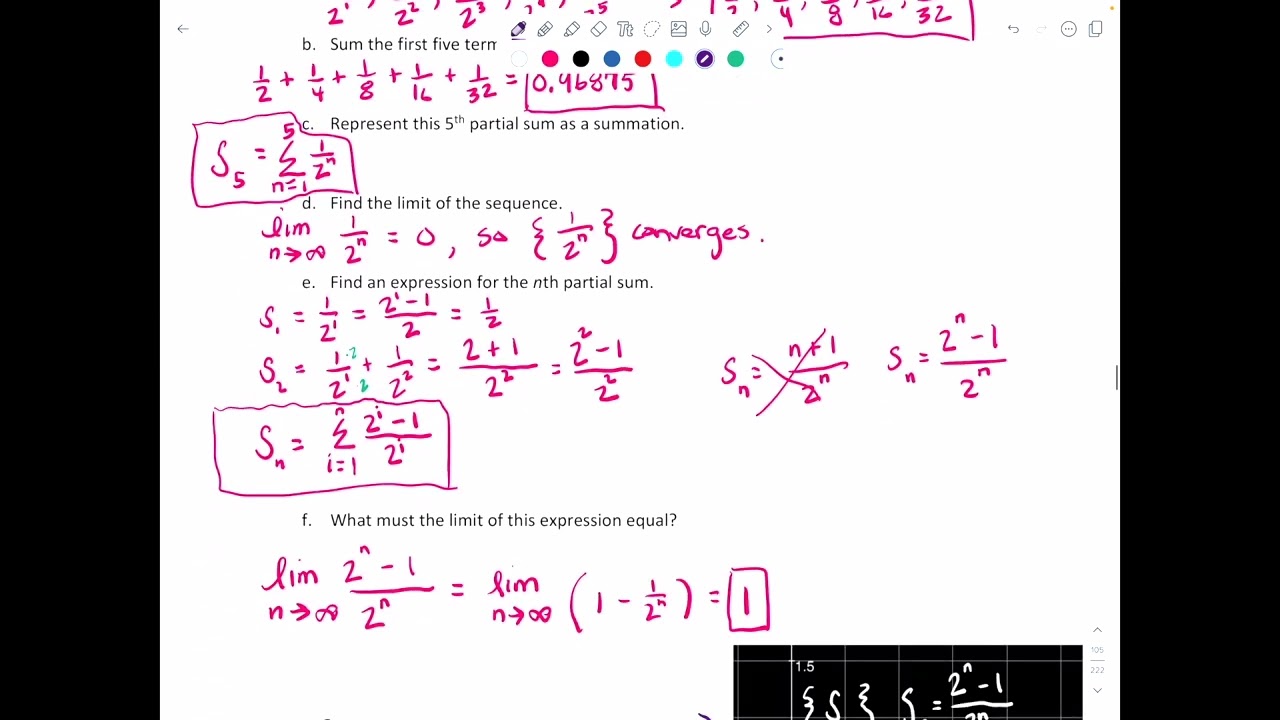 2¹, 2², 2³, 2
4, 8, 16, 32
b. Sum the first five term
1/2 + 1/4 + 1/8 + 1/16 + 1/32 = 0.96875
c. Represent this 5th partial sum as a summation.
S₅ = 5 Σ n=1 1/2ⁿ
d. Find the limit of the sequence.
lim n→∞ 1/2ⁿ = 0, so {1/2ⁿ} converges.
e. Find an expression for the nth partial sum.
S₁ = 1/2¹ = 2¹-1/2 = 1/2
S₂ = 1·2/2¹·2 + 1/2² = 2+1/2² = 2²-1/2²
Sₙ = n+1/2ⁿ Sₙ = 2ⁿ-1/2ⁿ
Sₙ = n Σ i=1 2ⁱ-1/2ⁱ
f. What must the limit of this expression equal?
lim n→∞ 2ⁿ-1/2ⁿ = lim n→∞ (1 - 1/2ⁿ) = 1
105
222
1.5
{S } S = 2ⁿ-1/2ⁿ